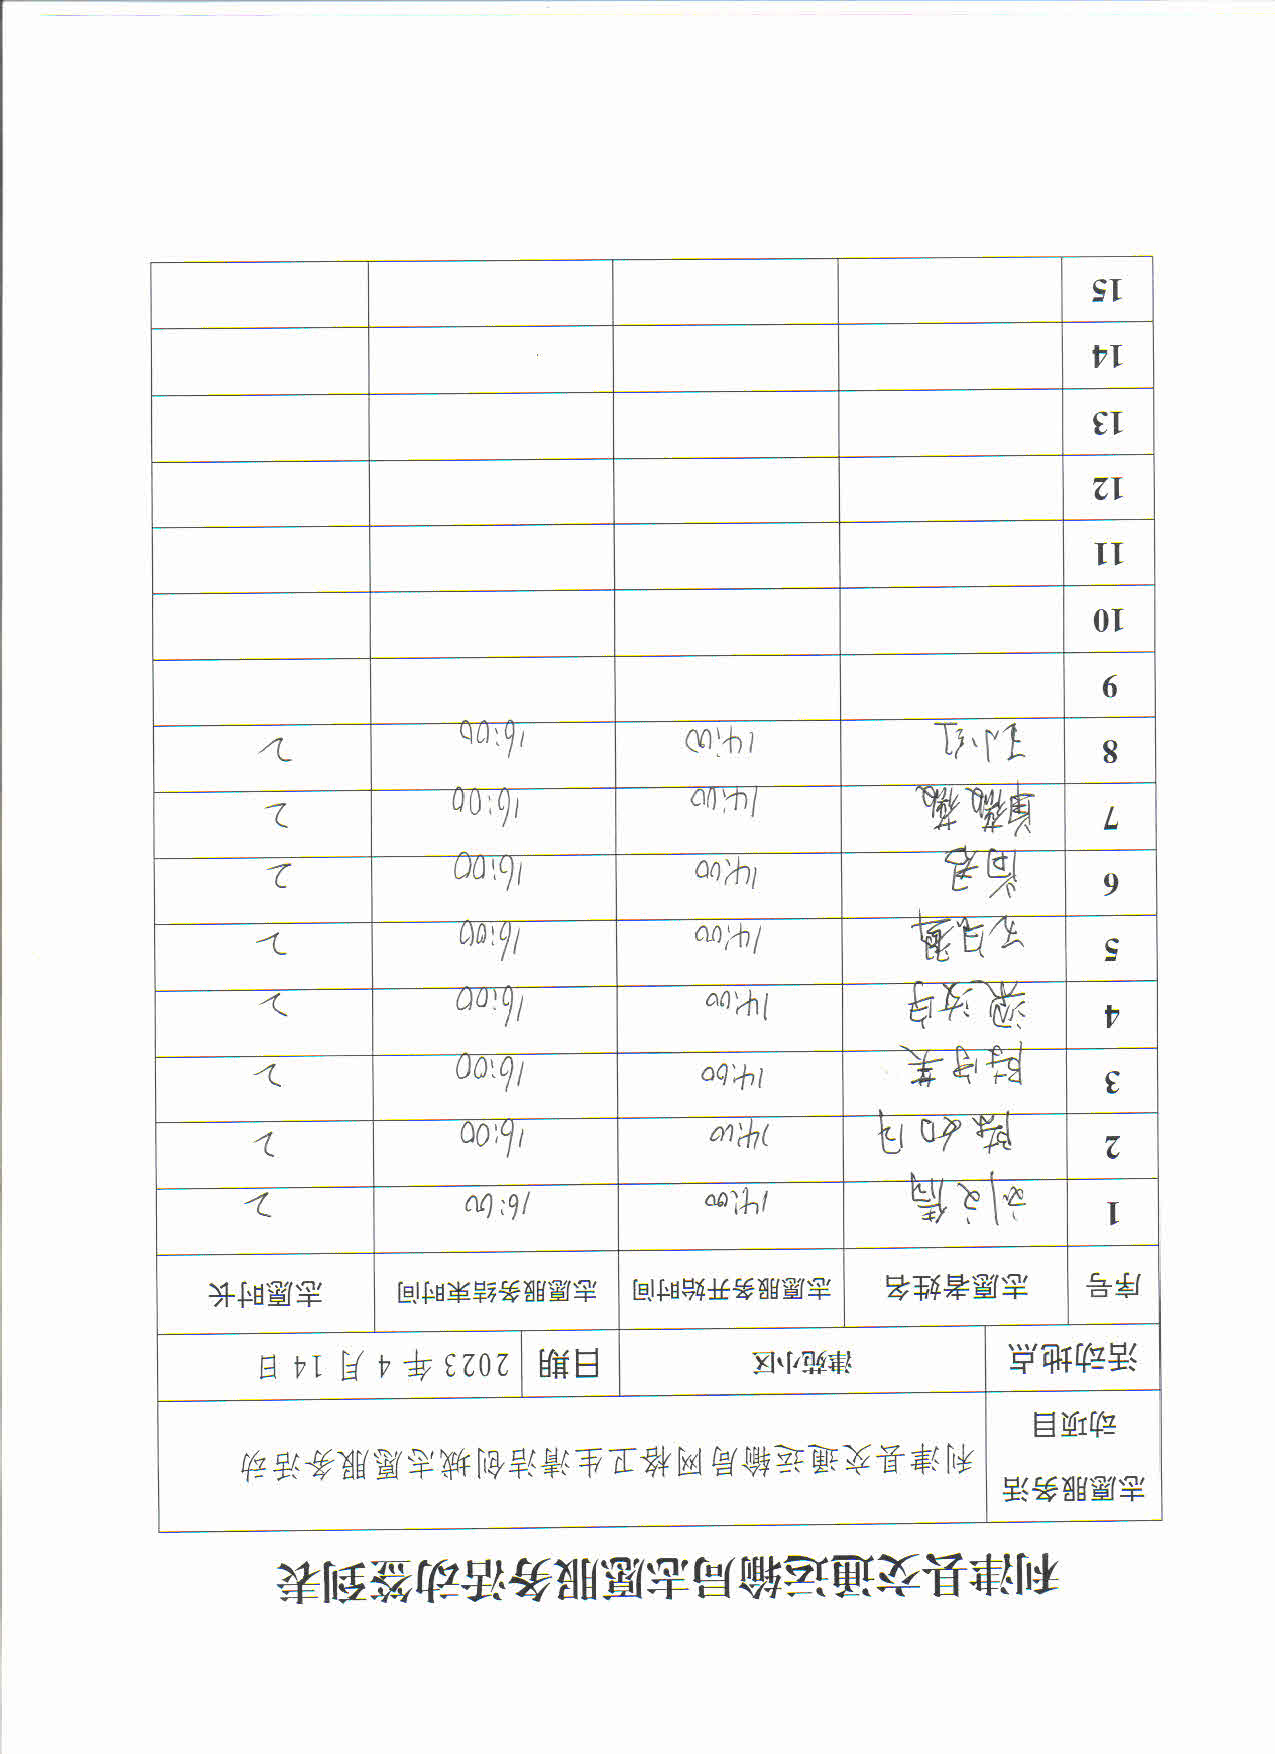 利津县交通运输局志愿服务活动签到表
志愿服务活动项目 利津县交通运输局网格卫生清洁创城志愿服务活动
活动地点 津苑小区 日期 2023 年 4 月 14 日
序号 志愿者姓名 志愿服务开始时间 志愿服务结束时间 志愿时长
1 刘文倩 14:00 16:00 2
2 陈如月 14:00 16:00 2
3 14:00 16:00 2
4 14:00 16:00 2
5 14:00 16:00 2
6 尚君 14:00 16:00 2
7 单薇薇 14:00 16:00 2
8 王小红 14:00 16:00 2
9
10
11
12
13
14
15